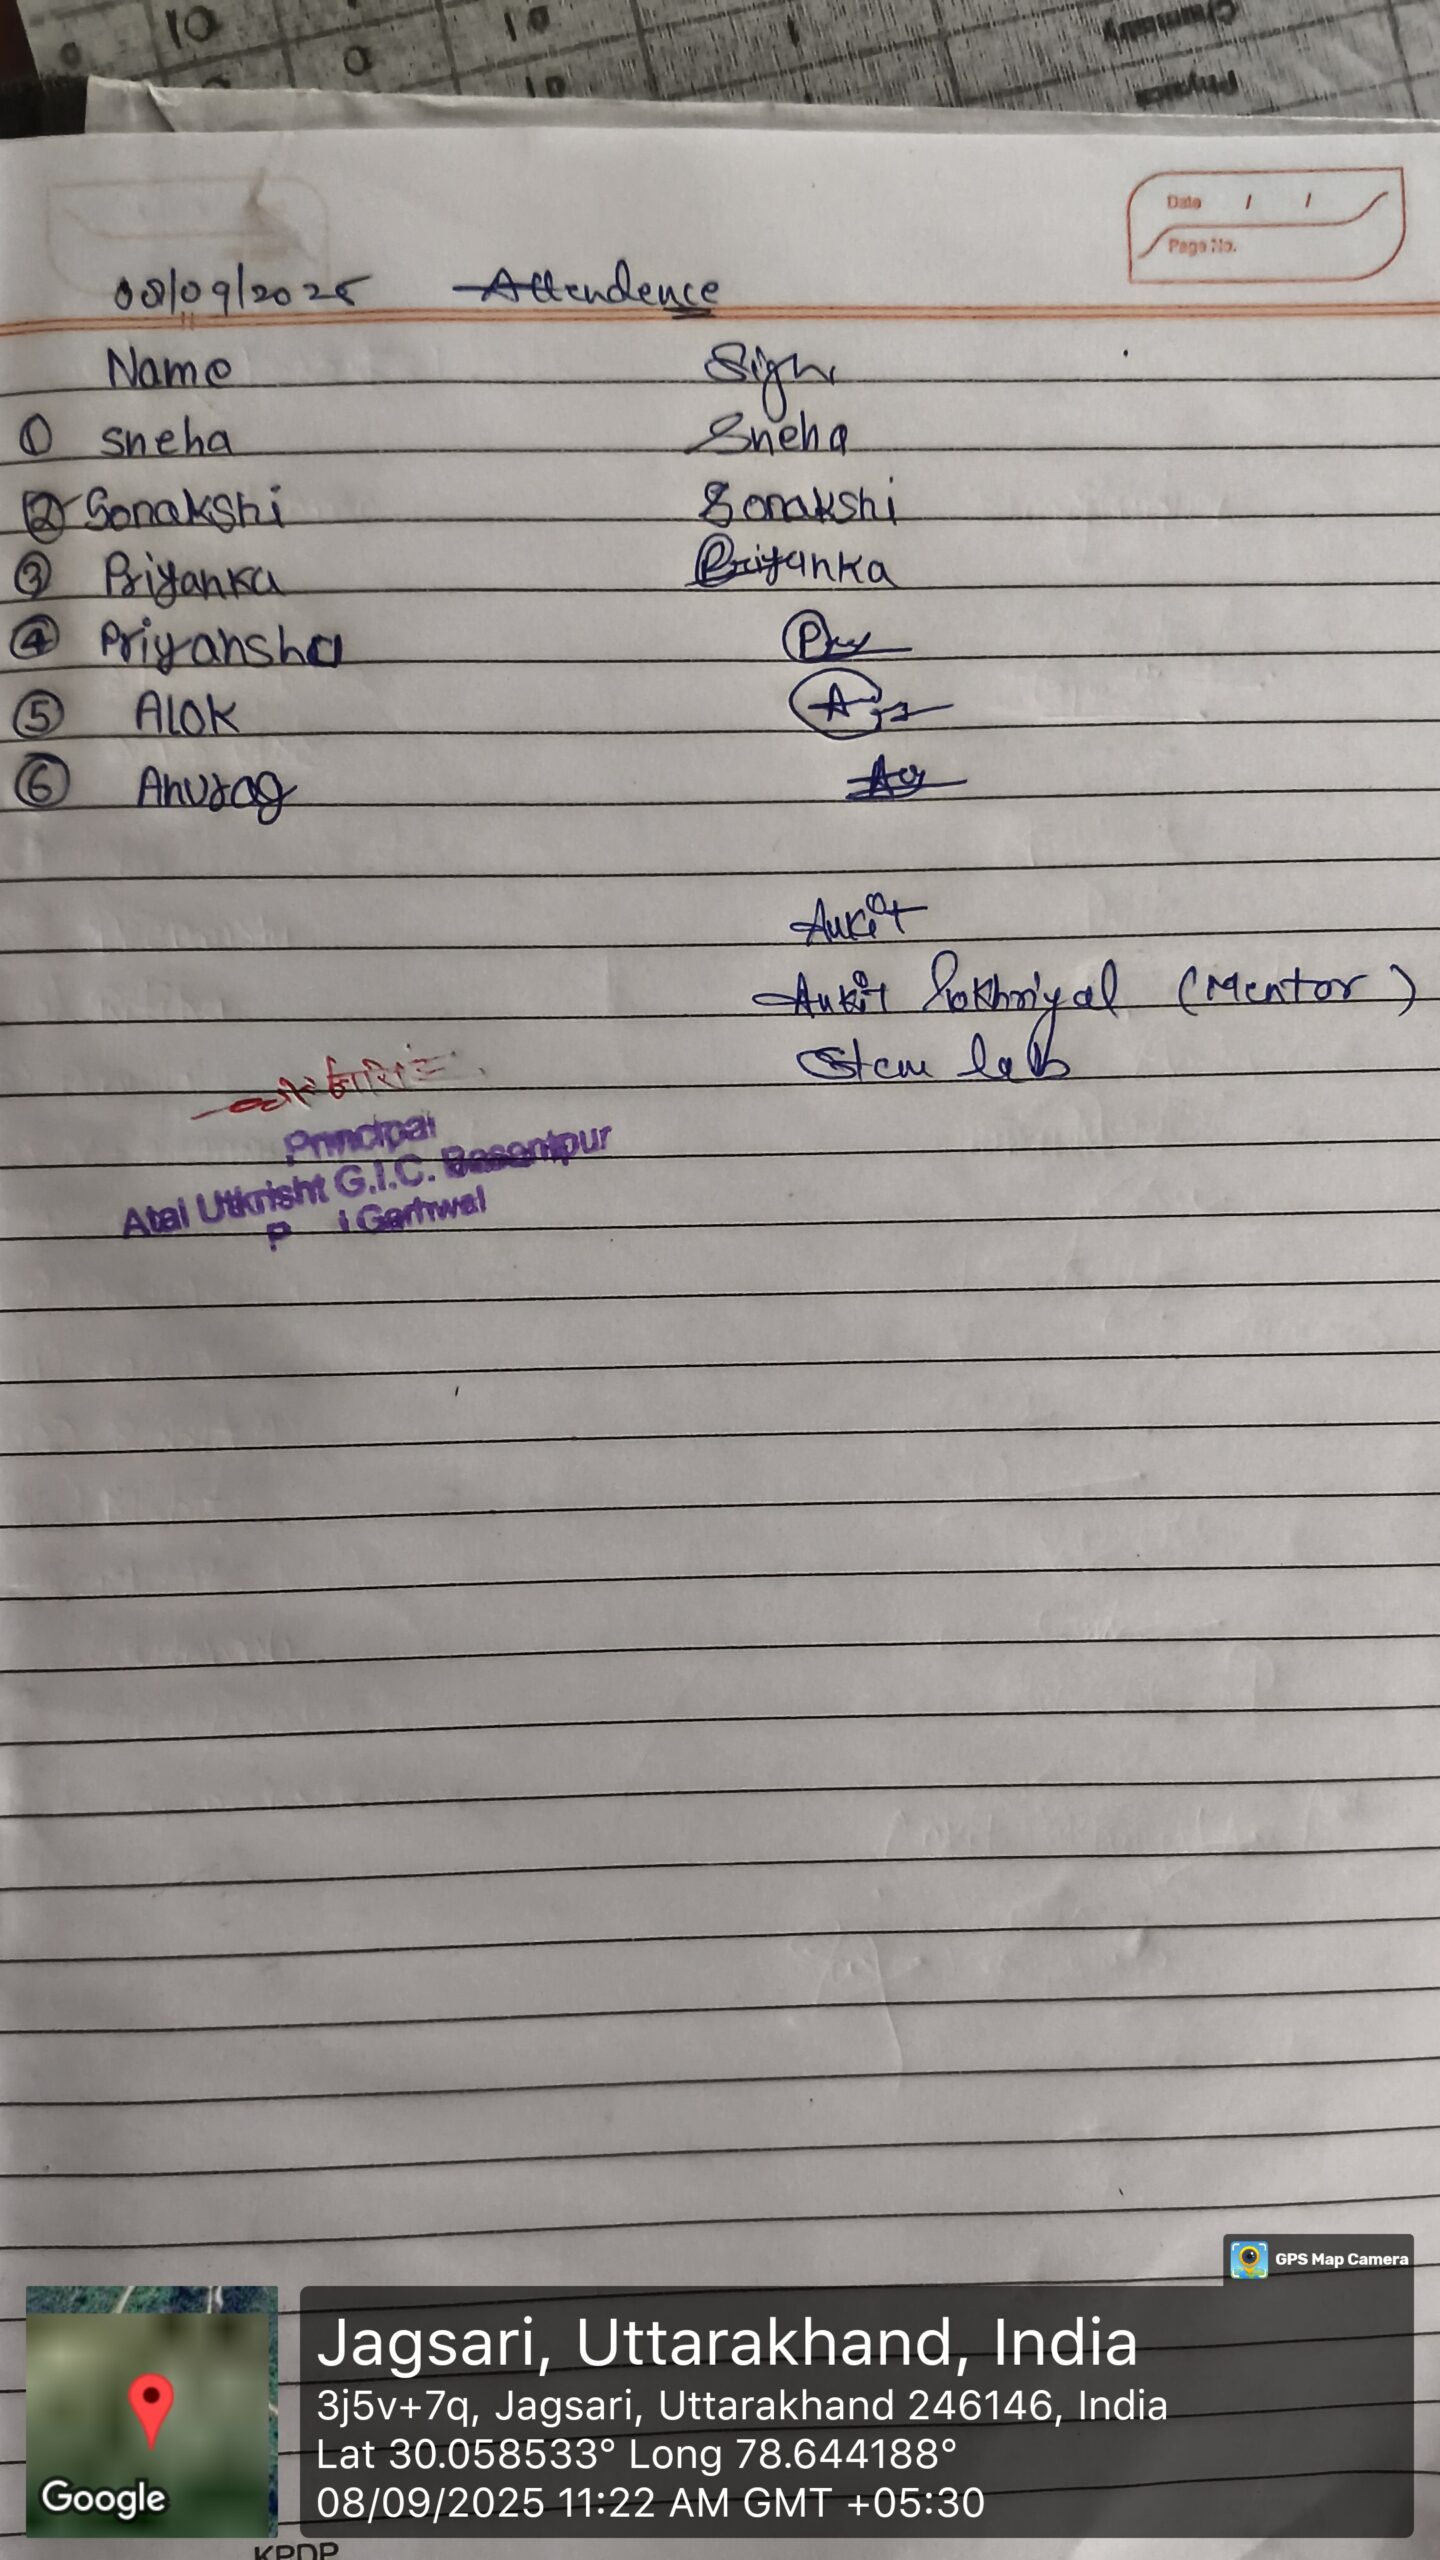 10
10
Chemistry
Physics
Date / /
Page No.
08/09/2025 Attendence
Name Sign
① Sneha Sneha
② Sonakshi Sonakshi
③ Priyanka Priyanka
④ Priyansha
⑤ Alok
⑥ Anurag
Ankit
Ankit Pokhriyal (Mentor)
Stem lab
Principal
Atal Utkrisht G.I.C. Basantpur
P i Garhwal
GPS Map Camera
Jagsari, Uttarakhand, India
3j5v+7q, Jagsari, Uttarakhand 246146, India
Lat 30.058533° Long 78.644188°
08/09/2025 11:22 AM GMT +05:30
Google
KPDP